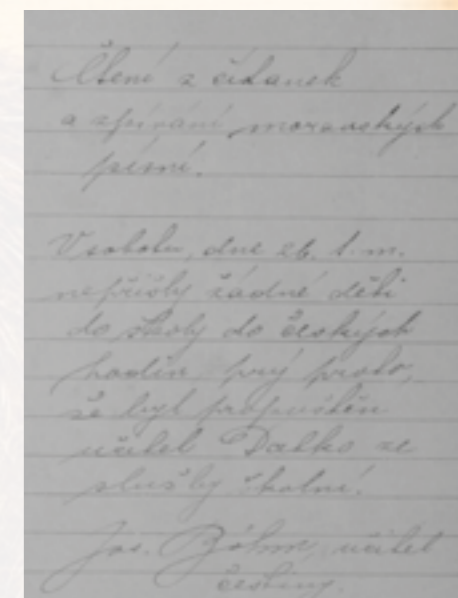 Čtení z čítanek
a zpívání moravských
písní.
V sobotu, dne 26. t. m.
nepřišly žádné děti
do školy do českých
hodin, prý proto,
že byl propuštěn
učitel Dalko ze
služby školní.
Jos. Böhm, učitel
češtiny.